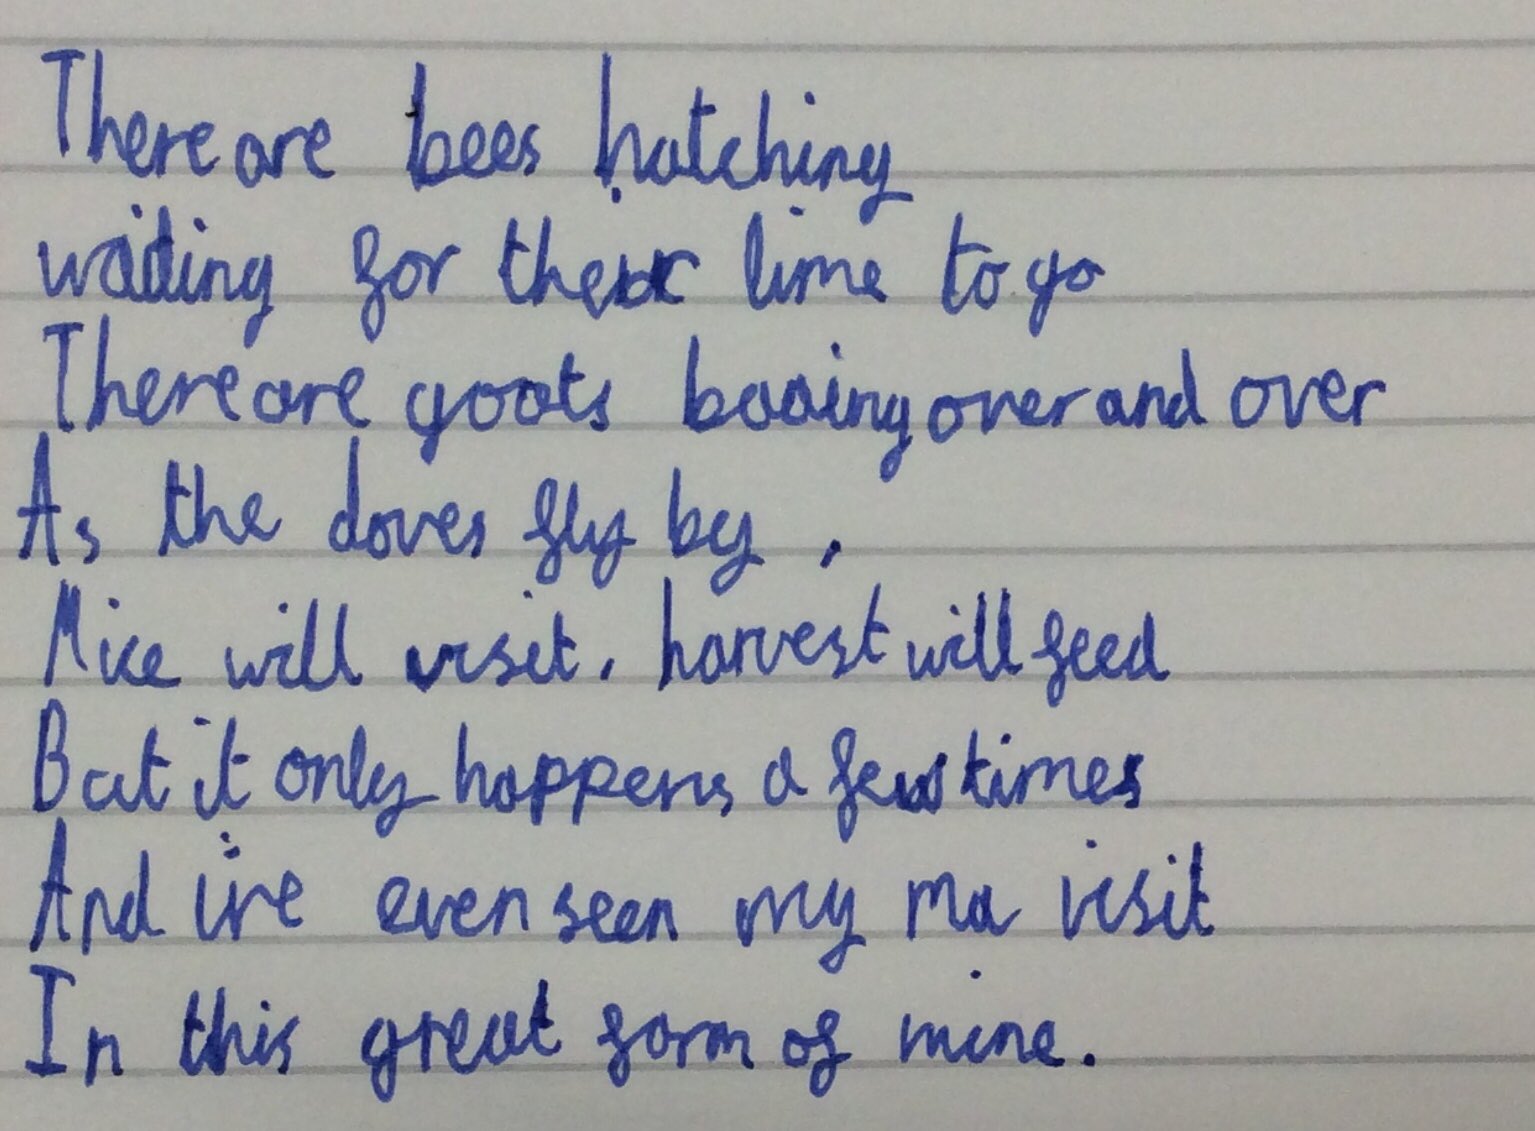 There are bees hatching
waiting for their time to go
There are goats baaing over and over
As the doves fly by,
Mice will visit, harvest will feed
But it only happens a few times
And i've even seen my ma visit
In this great farm of mine.